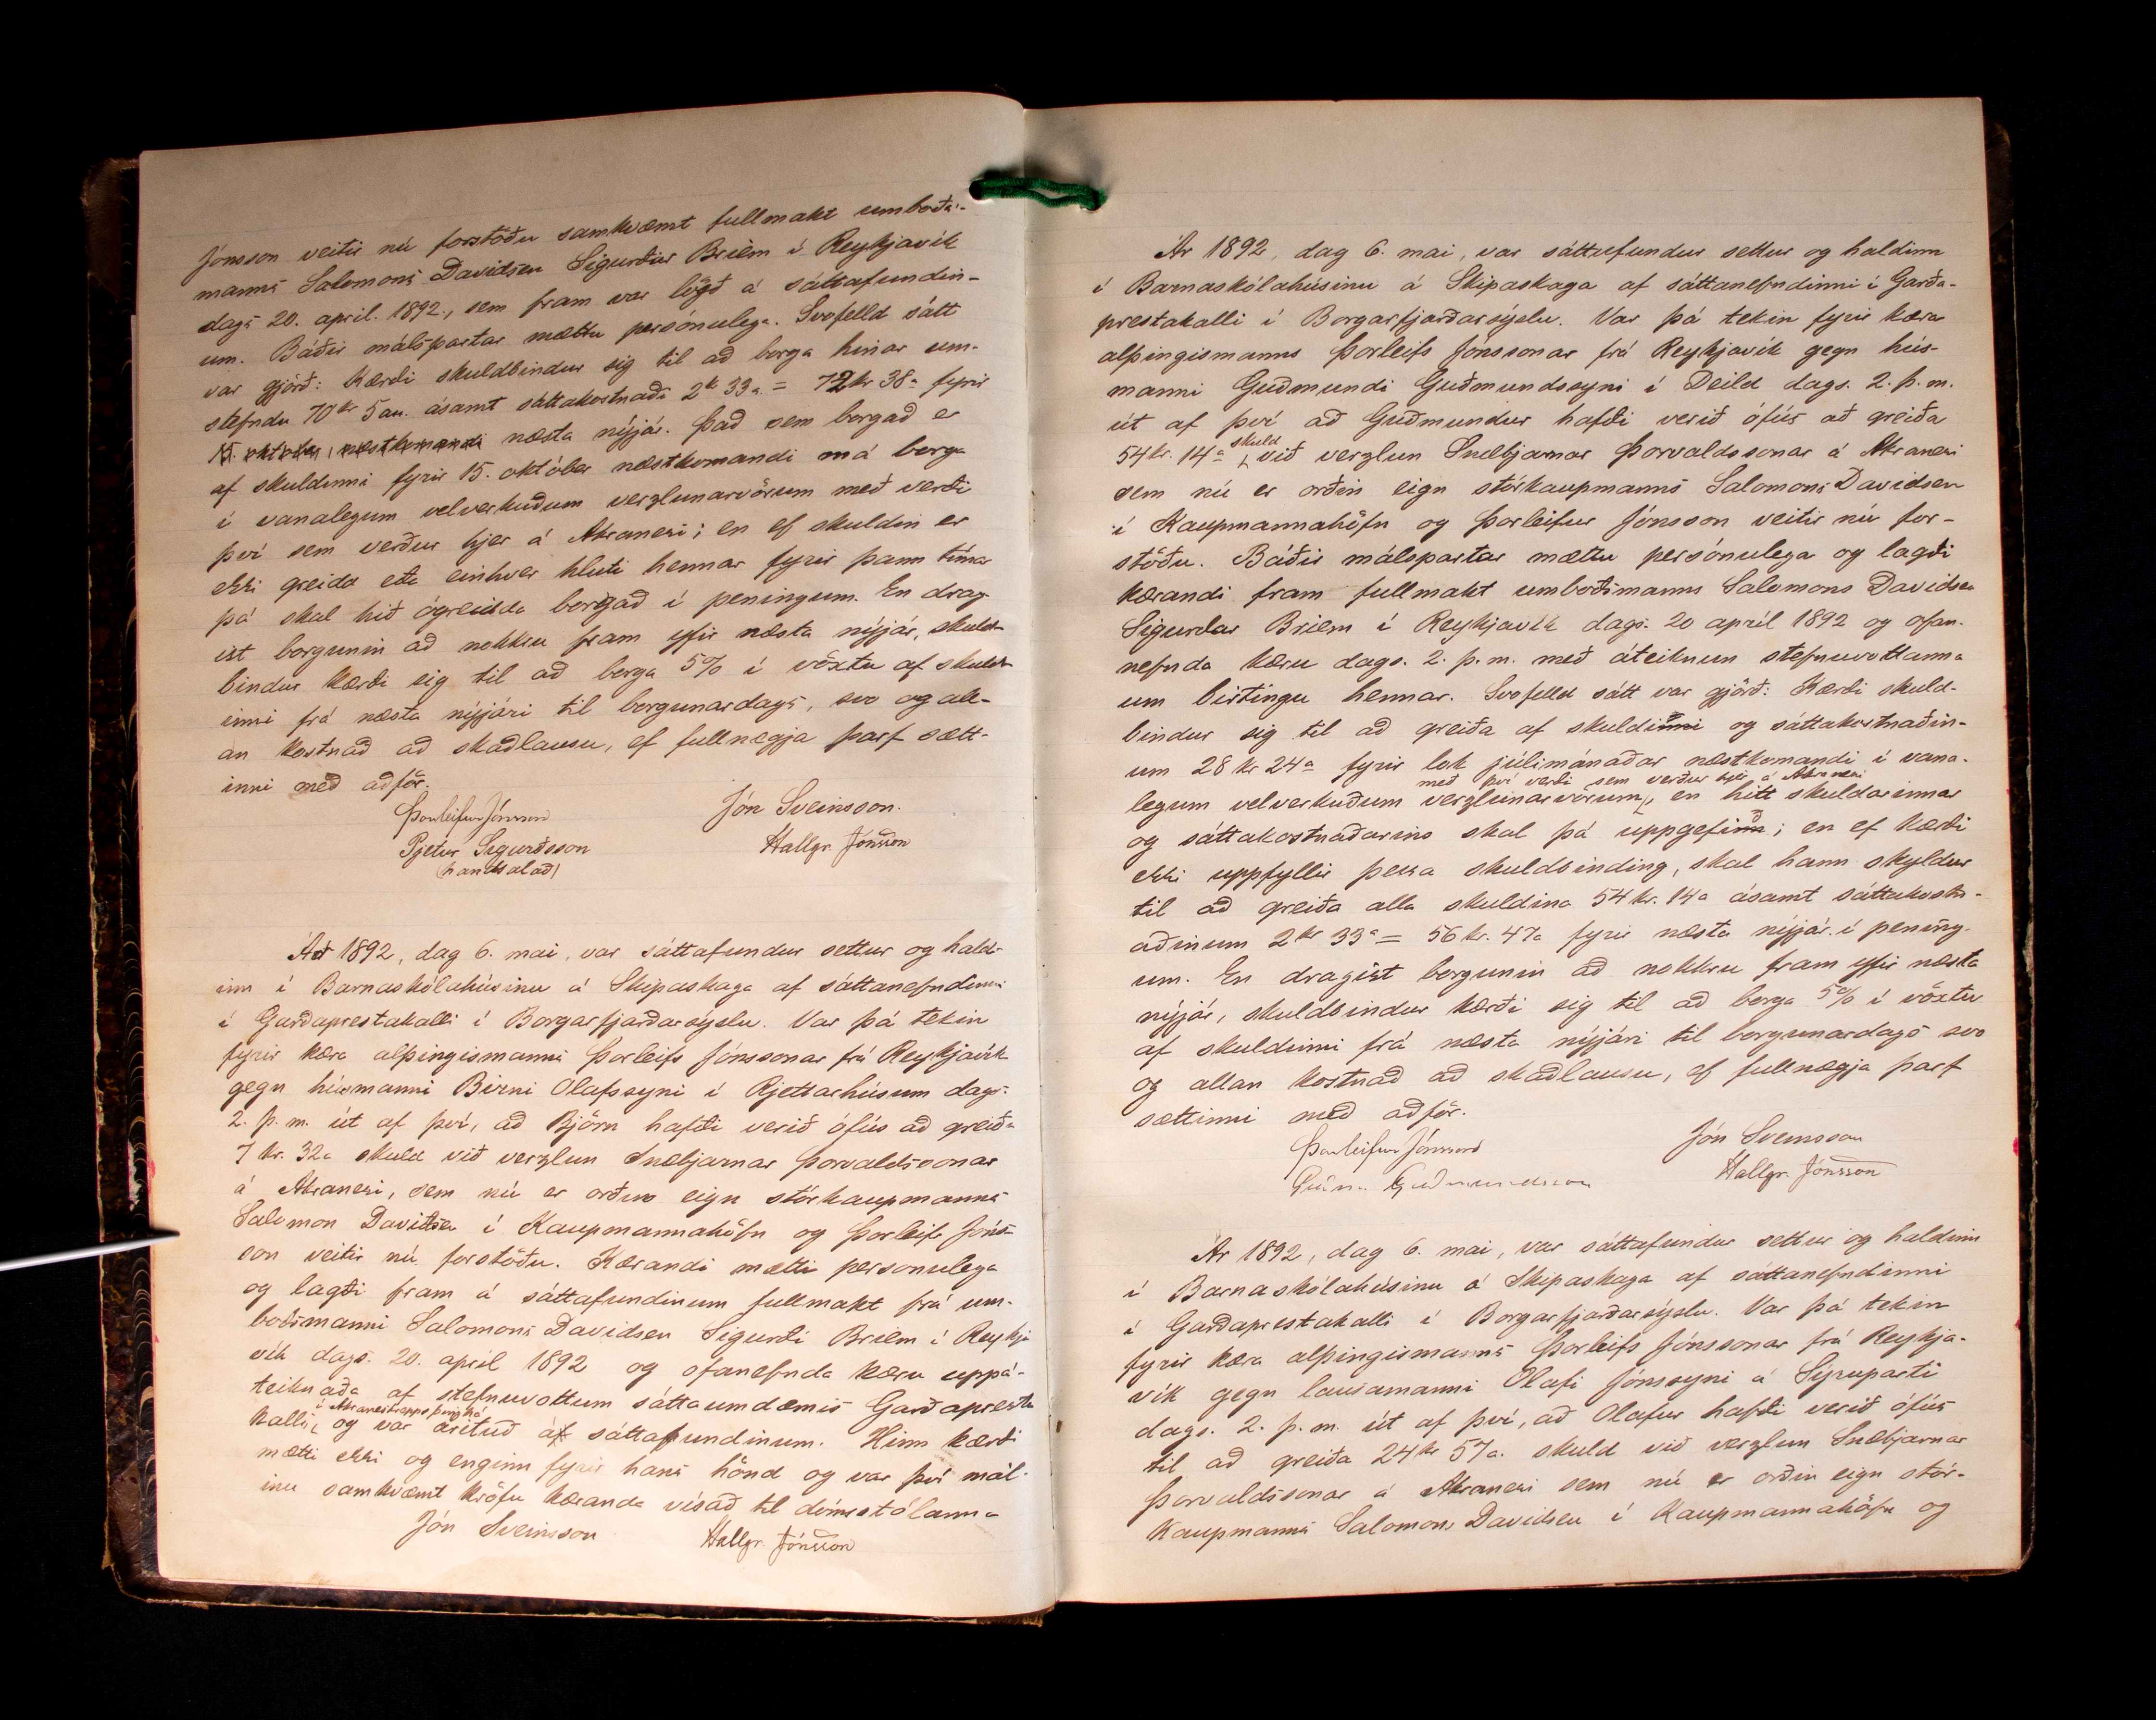 Jónsson veitir nú forstöðu samkvæmt fullmakt umboðs-
manns Salomons Davidsen Sigurðar Briem í Reykjavík
dags 20. april. 1892., sem fram var lögð á sáttafundin-
um. Báðir málspartar mættu persónulega. Svofelld sátt
var gjörð: Kærði skuldbindur sig til að borga hinar um-
stefndu 70 kr 5 au. ásamt sáttakostnaði 2 kr 33 a = 72 kr 38 a fyrir
15. október næstkomandi næsta nýjár. Það sem borgað er
af skuldinni fyrir 15. október næstkomandi má borga
í vanalegum velverkuðum verzlunarvörum með verði
því sem verður hjer á Akranesi; en ef skuldin er
ekki greidd eða einhver hluti hennar fyrir þann tíma
þá skal hið ógreidda borgað í peningum. En drag-
ist borgunin að nokkru fram yfir næsta nýjár, skuld-
bindur kærði sig til að borga 5% í vöxtu af skuld-
inni frá næsta nýjári til borgunardags, svo og all-
an kostnað að skaðlausu, ef fullnægja þarf sætt-
inni með aðför.
Þorleifur Jónsson
Jón Sveinsson.
Pjetur Sigurðsson
Hallgr. Jónsson
(handsalað)
Ár 1892, dag 6. mai, var sáttafundur settur og hald-
inn í Barnaskólahúsinu á Skipaskaga af sáttanefndinni
í Garðaprestakalli í Borgarfjarðarsýslu. Var þá tekin
fyrir kæra alþingismanns Þorleifs Jónssonar frá Reykjavík
gegn húsmanni Birni Olafssyni í Rjettarhúsum dags.
2. þ. m. út af því, að Björn hafði verið ófús að greiða
7 kr. 32 a skuld við verzlun Snæbjarnar Þorvaldssonar
á Akranesi, sem nú er orðin eign stórkaupmanns
Salomon Davidsen í Kaupmannahöfn og Þorleifr Jóns-
son veitir nú forstöðu. Kærandi mætti personulega
og lagði fram á sáttafundinum fullmakt frá um-
boðsmanni Salomons Davidsen Sigurði Briem í Reykja
vík dags. 20. april 1892 og ofannefnda kæru uppá-
teiknaða af stefnuvottum sáttaumdæmis Garðapresta
í Akraneshrepps þinghá
kalli, og var áritað á sáttafundinum. Hinn kærði
mætti ekki og enginn fyrir hans hönd og var því mál-
inu samkvæmt kröfu kæranda vísað til dómstólanna
Jón Sveinsson
Hallgr. Jónsson
Ár 1892, dag 6. mai, var sáttafundur settur og haldinn
í Barnaskólahúsinu á Skipaskaga af sáttanefndinni í Garða-
prestakalli í Borgarfjarðarsýslu. Var þá tekin fyrir kæra
alþingismanns Þorleifs Jónssonar frá Reykjavík gegn hús-
manni Guðmundi Guðmundssyni í Deild dags. 2. þ. m.
út af því að Guðmundur hafði verið ófús að greiða
skuld
54 kr. 14 a við verzlun Snæbjarnar Þorvaldssonar á Akranesi
sem nú er orðin eign stórkaupmanns Salomons Davidsen
í Kaupmannahöfn og Þorleifur Jónsson veitir nú for-
stöðu. Báðir málspartar mættu persónulega og lagði
kærandi fram fullmakt umboðsmanns Salomons Davidsen
Sigurðar Briem í Reykjavík dags. 20 apríl 1892 og ofan-
nefnda kæru dags. 2. þ. m. með áteiknun stefnuvottanna
um birtingu hennar. Svofelld sátt var gjörð: Kærði skuld-
bindur sig til að greiða af skuldinni og sáttakostnaðin-
um 28 kr 24 a fyrir lok júlimánaðar næstkomandi í vana-
með því verði sem verður hjer á Akranesi
legum velverkuðum verzlunarvörum, en hitt skuldarinnar
og sáttakostnaðarins skal þá uppgefið; en ef kærði
ekki uppfyllir þessa skuldbinding, skal hann skyldur
til að greiða alla skuldina 54 kr. 14 a ásamt sáttakostn-
aðinum 2 kr 33 a = 56 kr. 47 a fyrir næsta nýjár í pening-
um. En dragist borgunin að nokkru fram yfir næsta
nýjár, skuldbindur kærði sig til að borga 5% í vöxtu
af skuldinni frá næsta nýjári til borgunardags svo
og allan kostnað að skaðlausu, ef fullnægja þarf
sættinni með aðför.
Þorleifur Jónsson
Jón Sveinsson
Guðm. Guðmundsson
Hallgr. Jónsson
Ár 1892, dag 6. mai, var sáttafundur settur og haldinn
í Barnaskólahúsinu á Skipaskaga af sáttanefndinni
í Garðaprestakalli í Borgarfjarðarsýslu. Var þá tekin
fyrir kæra alþingismanns Þorleifs Jónssonar frá Reykja-
vík gegn lausamanni Olafi Jónssyni á Sýruparti
dags. 2. þ. m. út af því, að Olafur hafði verið ófús
til að greiða 24 kr 57 a. skuld við verzlun Snæbjarnar
Þorvaldssonar á Akranesi sem nú er orðin eign stór-
kaupmanns Salomons Davidsen í Kaupmannahöfn og